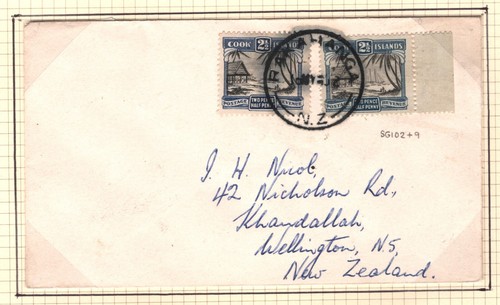 COOK 2½ ISLANDS
POSTAGE TWO PENCE HALF PENNY REVENUE
COOK 2½ ISLANDS
POSTAGE TWO PENCE HALF PENNY REVENUE
RAROTONGA
N.Z
SG102+9
I. H. Nicol,
42 Nicholson Rd,
Khandallah,
Wellington, N5,
New Zealand.